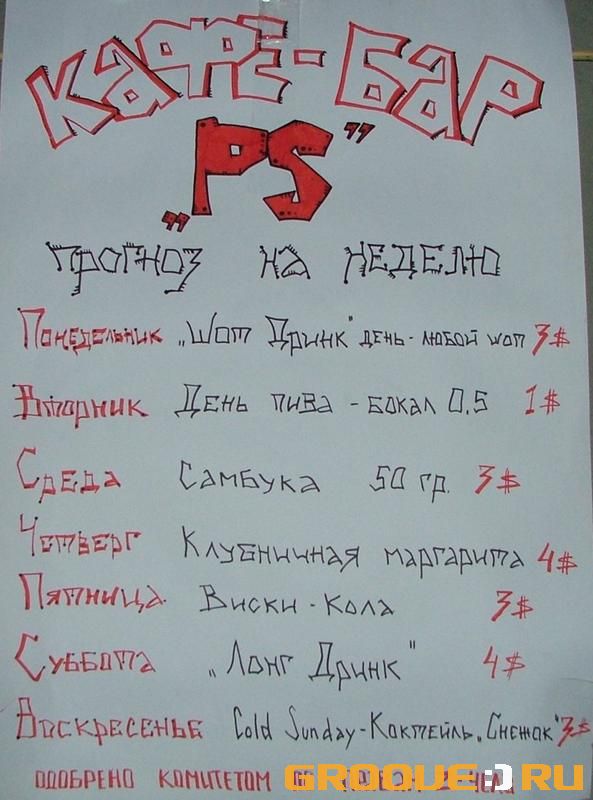 КАФЕ-БАР
"PS"
ПРОГНОЗ НА НЕДЕЛЮ
Понедельник „Шот Дринк" день - любой шот 3$
Вторник День пива - бокал 0.5 1$
Среда Самбука 50 гр. 3$
Четверг Клубничная маргарита 4$
Пятница Виски - Кола 3$
Суббота „Лонг Дринк" 4$
Воскресенье Cold Sunday - Коктейль „Снежок" 3$
ОДОБРЕНО КОМИТЕТОМ
GROOVE:)RU